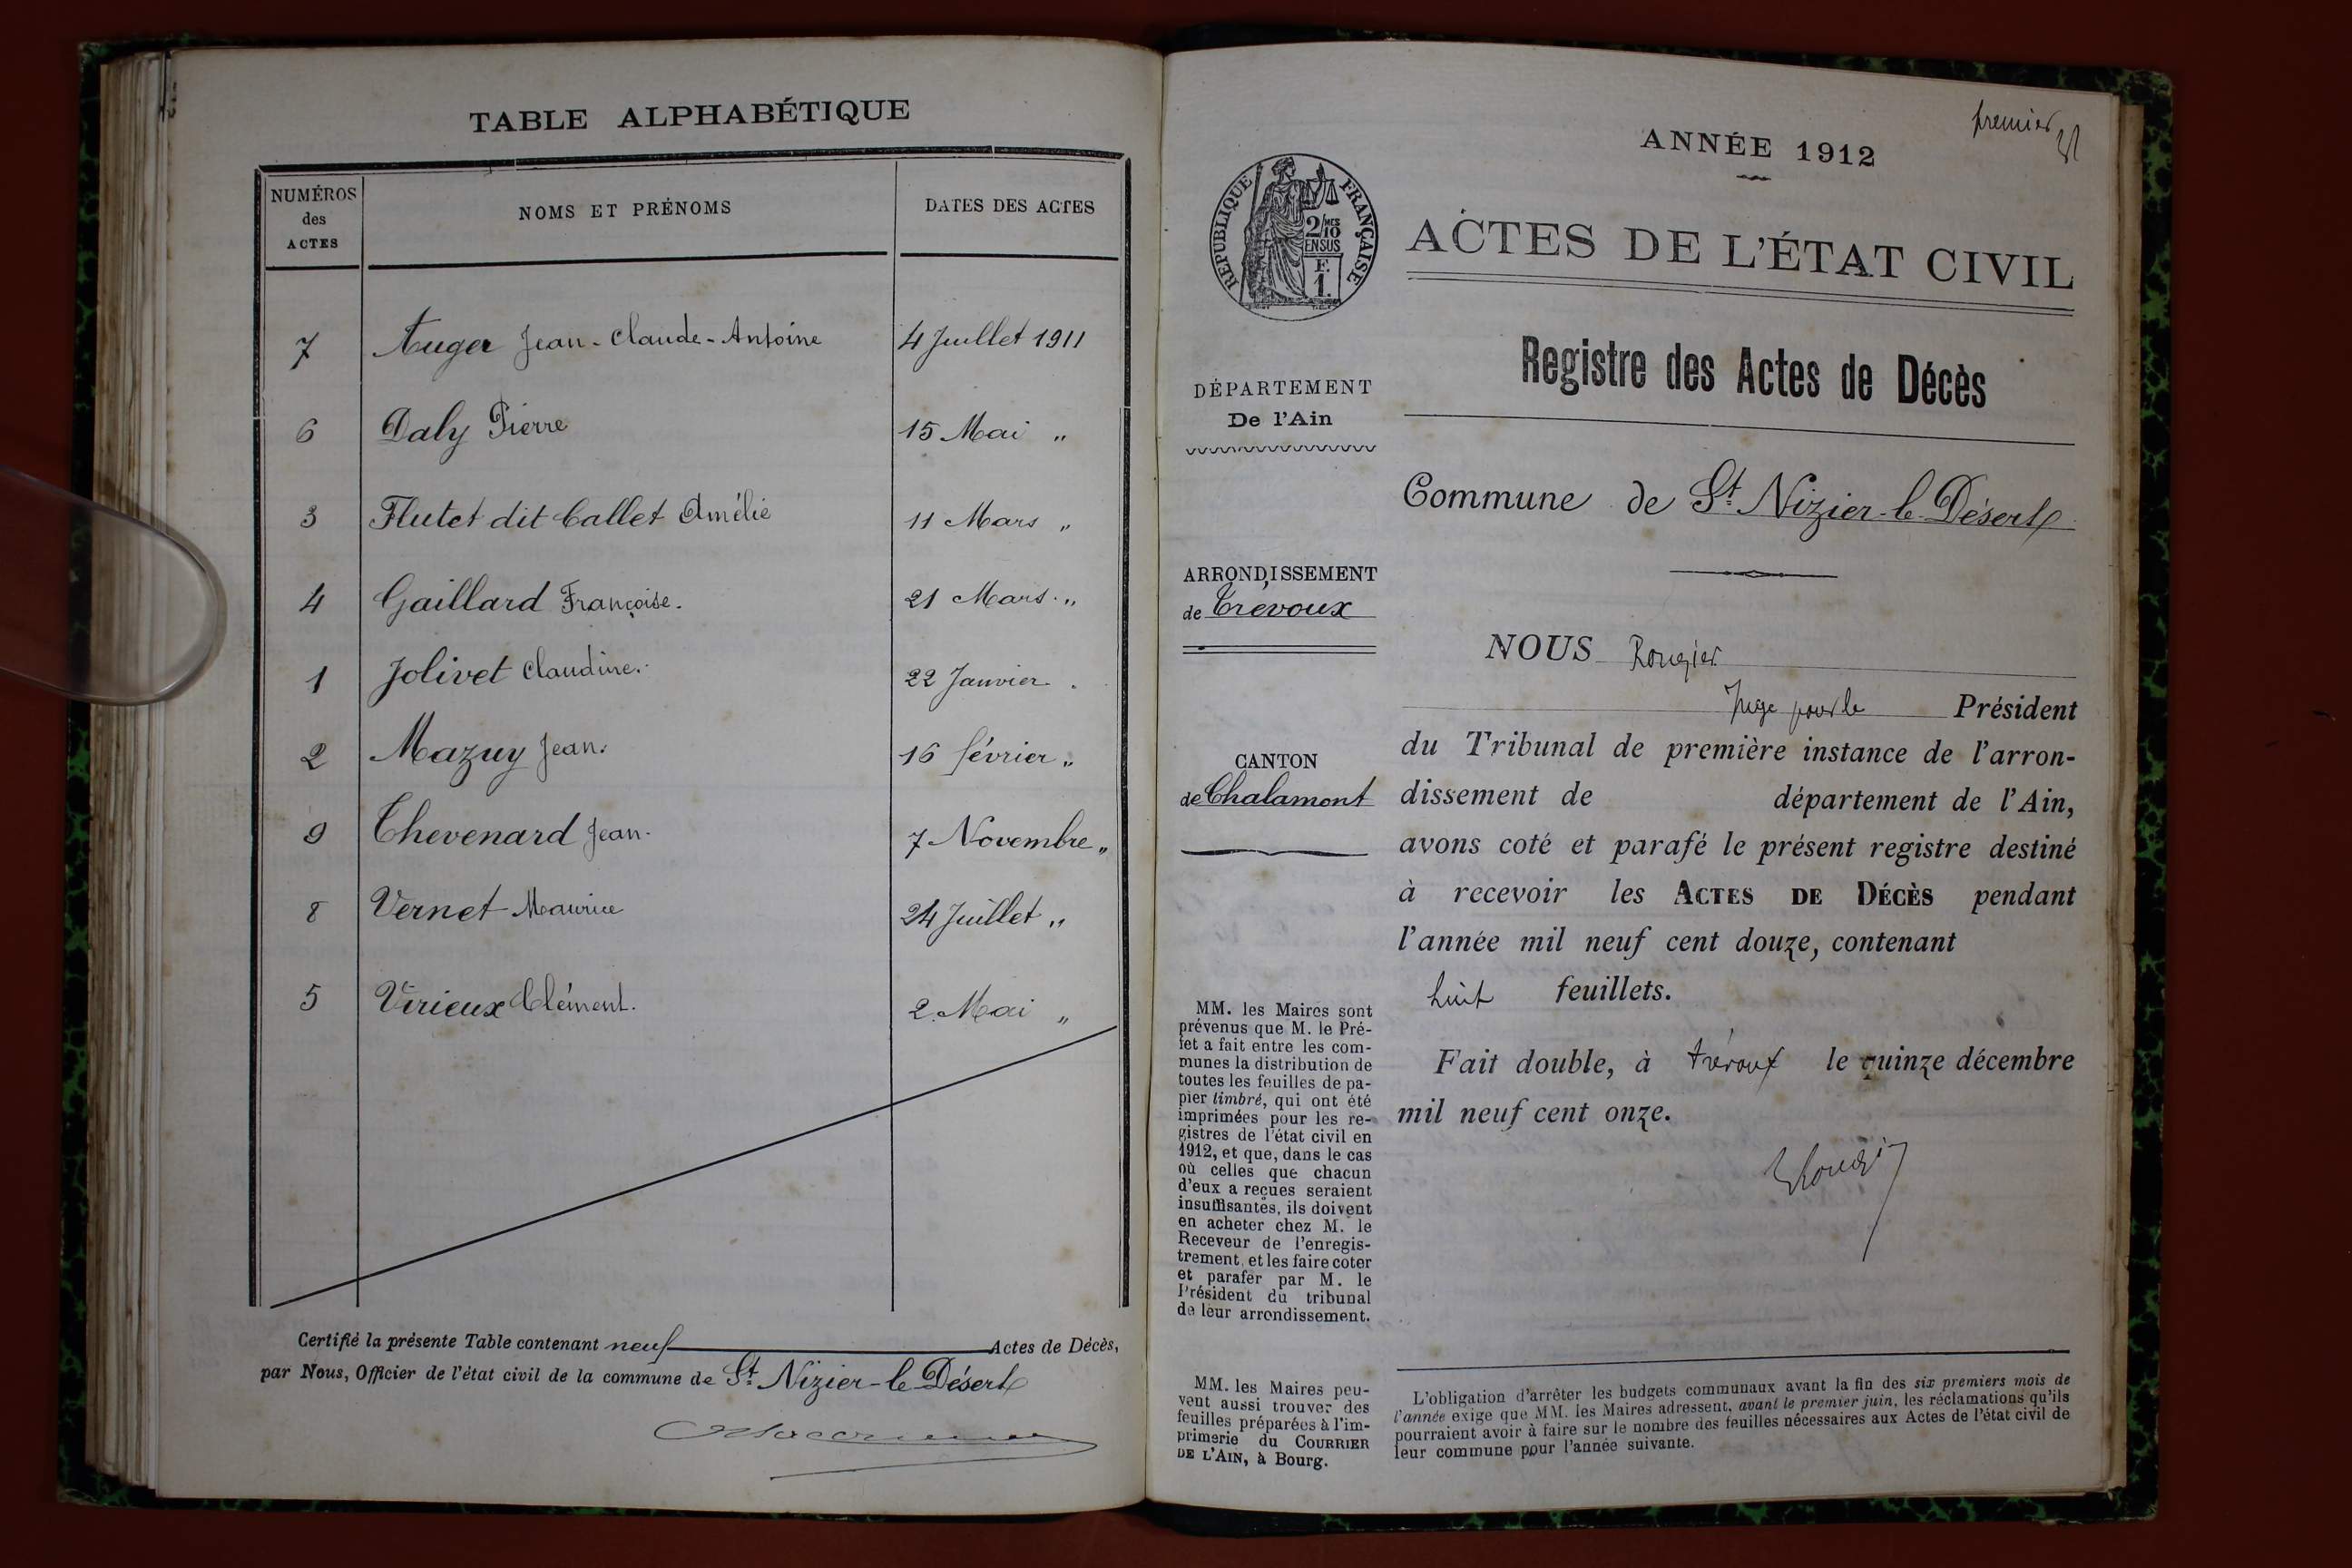 TABLE ALPHABÉTIQUE
NUMÉROS
des
ACTES
NOMS ET PRÉNOMS
DATES DES ACTES
7 Auger Jean-Claude-Antoine 4 Juillet 1911
6 Daly Pierre 15 Mai "
3 Flutet dit Callet Amélie 11 Mars "
4 Gaillard Françoise. 21 Mars. "
1 Jolivet Claudine. 22 Janvier .
2 Mazuy Jean. 16 février "
9 Thevenard Jean. 7 Novembre "
8 Vernet Maurice 24 Juillet "
5 Virieux Clément. 2 Mai "
Certifié la présente Table contenant neuf Actes de Décès,
par Nous, Officier de l'état civil de la commune de St. Nizier-le-Désert
premier
ANNÉE 1912
RÉPUBLIQUE FRANÇAISE
2/10 MES
EN SUS
F.
1.
ACTES DE L'ÉTAT CIVIL
Registre des Actes de Décès
DÉPARTEMENT
De l'Ain
Commune de St. Nizier-le-Désert
ARRONDISSEMENT
de Trévoux
CANTON
de Chalamont
NOUS Rougier
Juge pour le Président
du Tribunal de première instance de l'arron-
dissement de département de l'Ain,
avons coté et parafé le présent registre destiné
à recevoir les ACTES DE DÉCÈS pendant
l'année mil neuf cent douze, contenant
huit feuillets.
Fait double, à Trévoux le quinze décembre
mil neuf cent onze.
MM. les Maires sont
prévenus que M. le Pré-
fet a fait entre les com-
munes la distribution de
toutes les feuilles de pa-
pier timbré, qui ont été
imprimées pour les re-
gistres de l'état civil en
1912, et que, dans le cas
où celles que chacun
d'eux a reçues seraient
insuffisantes, ils doivent
en acheter chez M. le
Receveur de l'enregis-
trement, et les faire coter
et parafer par M. le
Président du tribunal
de leur arrondissement.
MM. les Maires peu-
vent aussi trouver des
feuilles préparées à l'im-
primerie du COURRIER
DE L'AIN, à Bourg.
L'obligation d'arrêter les budgets communaux avant la fin des six premiers mois de
l'année exige que MM. les Maires adressent, avant le premier juin, les réclamations qu'ils
pourraient avoir à faire sur le nombre des feuilles nécessaires aux Actes de l'état civil de
leur commune pour l'année suivante.